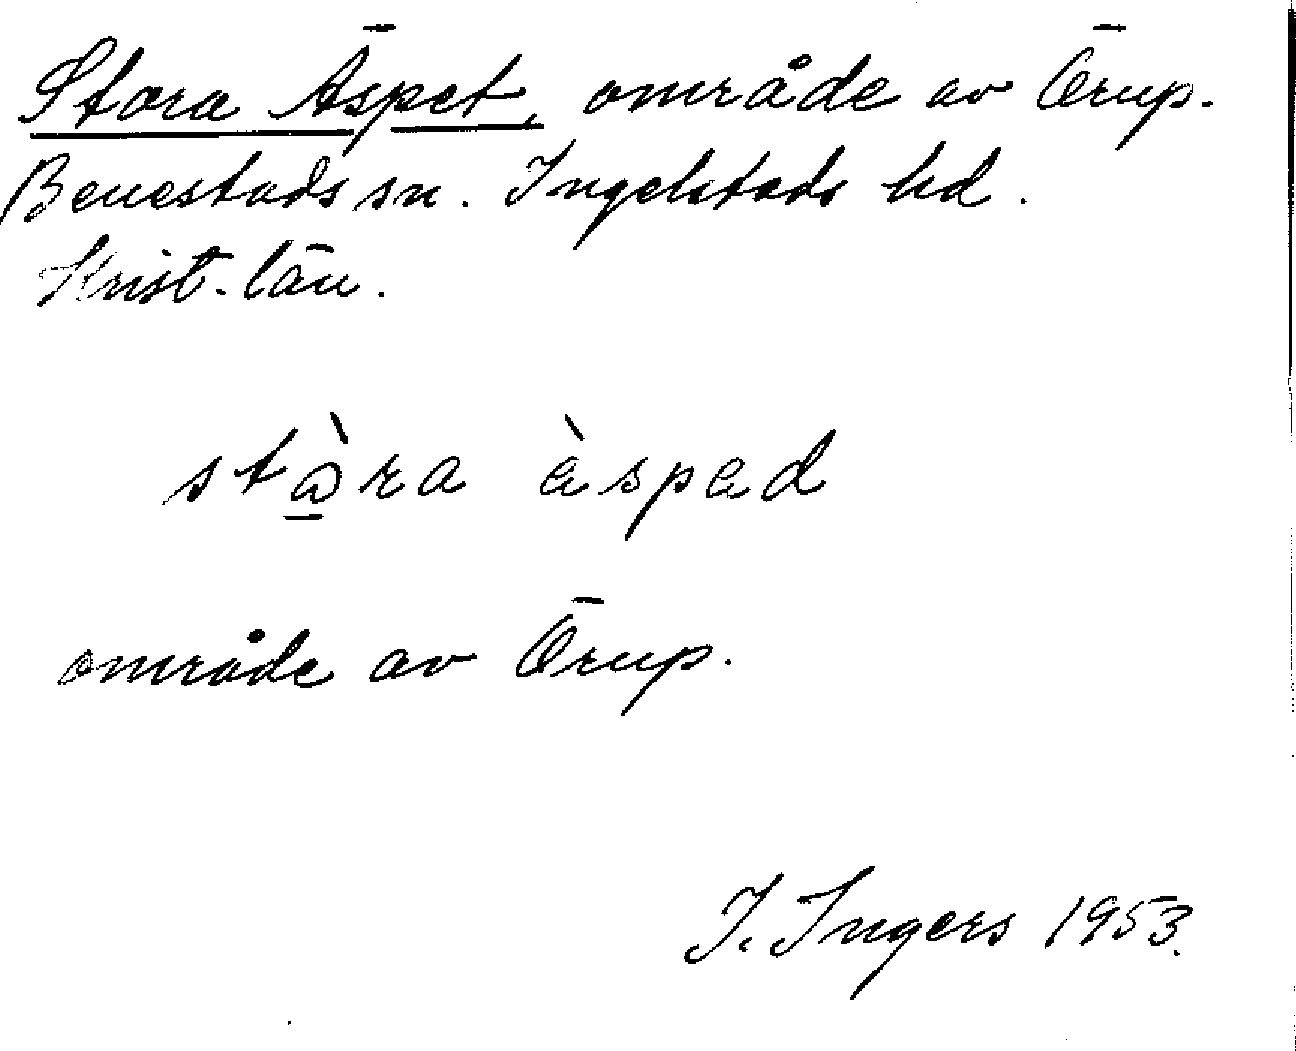 Stora Äspet, område av Örup.
Benestads sn. Ingelstads hd.
Krist. län.
stòra äspad
område av Örup.
I. Ingers 1953.